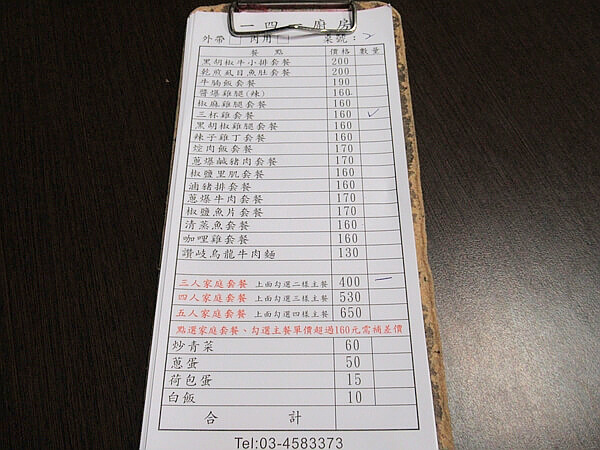 一四一廚房
外帶 內用 桌號：2
餐點 價格 數量
黑胡椒牛小排套餐 200
乾煎虱目魚肚套餐 200
牛腩飯套餐 190
醬爆雞腿(辣) 160
椒麻雞腿套餐 160
三杯雞套餐 160 ✓
黑胡椒雞腿套餐 160
辣子雞丁套餐 160
焢肉飯套餐 170
蔥爆鹹豬肉套餐 170
椒鹽里肌套餐 160
滷豬排套餐 160
蔥爆牛肉套餐 170
椒鹽魚片套餐 170
清蒸魚套餐 160
咖哩雞套餐 160
讚岐烏龍牛肉麵 130
三人家庭套餐 上面勾選二樣主餐 400 一
四人家庭套餐 上面勾選三樣主餐 530
五人家庭套餐 上面勾選四樣主餐 650
點選家庭套餐、勾選主餐單價超過160元需補差價
炒青菜 60
蔥蛋 50
荷包蛋 15
白飯 10
合計
Tel:03-4583373